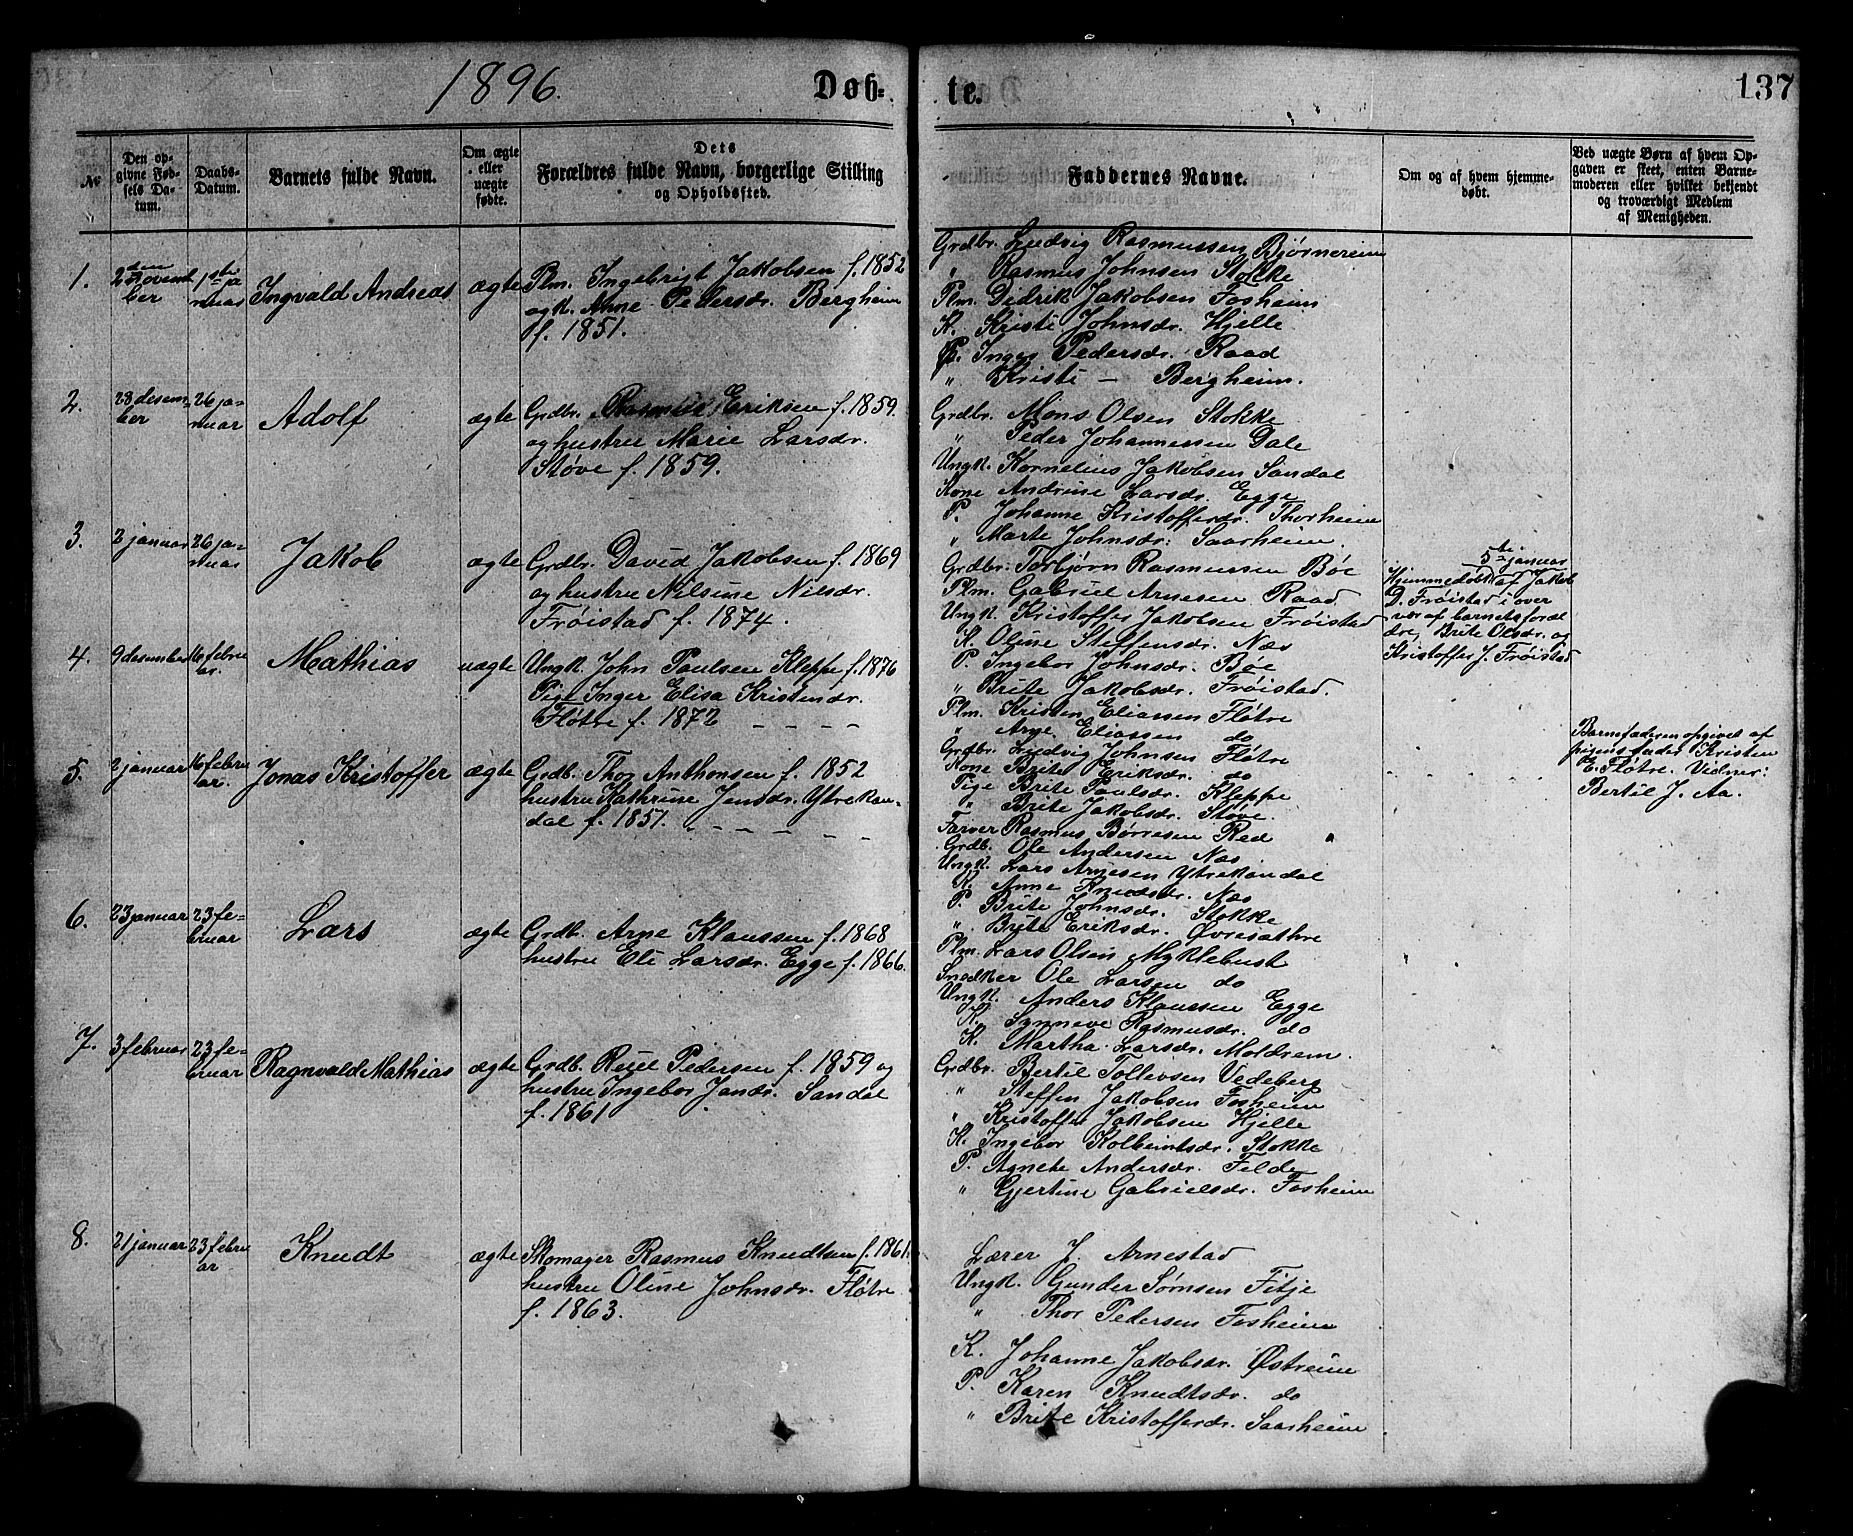 1896.
Døb-
te.
137
№
Den op-
givne Fød-
sels Da-
tum.
Daabs-
Datum.
Barnets fulde Navn.
Om ægte
eller
uægte
fødte.
Dets
Forældres fulde Navn, borgerlige Stilling
og Opholdssted.
Faddernes Navne.
Om og af hvem hjemme-
døbt.
Ved uægte Børn af hvem Op-
gaven er skeet, enten Barne-
moderen eller hvilket bekjendt
og troværdigt Medlem
af Menigheden.
1.
2den Novem
ber
1ste ja
nuar
Ingvald Andreas
ægte
Plm. Ingebrigt Jakobsen f. 1852
og k. Anne Pedersdr. Bergheim
f. 1851.
Grdbr. Ludvig Rasmussen Bjørnereim
" Rasmus Johnsen Stokke
Plm. Didrik Jakobsen Fosheim
K. Kristi Johnsdr. Hjelle
P. Inger Pedersdr. Raad
" Kristi — Bergheim.
2.
28 desem-
ber
26 ja-
nuar
Adolf
ægte
Grdbr. Rasmus Eriksen f. 1859.
og hustru Marie Larsdr.
Støve f. 1859.
Grdbr. Mons Olsen Stokke
" Peder Johannessen Dale
Ungk. Kornelius Jakobsen Sandal
Kone Andrine Larsdr. Egge
P. Johanne Kristofferdr. Thorheim
" Marte Johnsdr. Saarheim.
3.
2 januar
26 ja-
nuar
Jakob
ægte
Grdbr. David Jakobsen f. 1869
og hustru Nilsine Nilsdr.
Frøistad f. 1874.
Grdbr. Torbjørn Rasmussen Bøe
Plm. Gabriel Arnesen Raad
Ungk. Kristoffer Jakobsen Frøistad
K. Oline Steffensdr. Næs
P. Ingebor Johnsdr. Bøe
" Brite Jakobsdr. Frøistad.
5te januar
Hjemmedøbt af Jakob
D. Frøistad i over
vær af barnets foræl
dre, Brite Olsdr. og
Kristoffer J. Frøistad
4.
9 desember
16 febru
ar.
Mathias
uægte
Ungk. John Paulsen Kleppe f. 1876
Pige Inger Elisa Kristendr.
Fløtre f. 1872 — — — —
Plm. Kristen Eliassen Fløtre
" Arne Eliassen do
Grdbr. Ludvig Johnsen Fløtre
Kone Brite Eriksdr. do
Pige Brite Paulsdr. Kleppe
" Brite Jakobsdr. Støve.
Barnefaderen opgivet af
pigens fader Kristen
E. Fløtre. Vidner:
Bertil J. Aa.
5.
2 januar
16 febru
ar.
Jonas Kristoffer
ægte
Grdb. Thor Anthonsen f. 1852
hustru Kathrine Jensdr. Ytrekan-
dal f. 1851. — — — — —
Farver Rasmus Børresen Red
Grdb. Ole Andersen Næs
Ungk. Lars Arnesen Ytrekandal
K. Anne Knudsdr. Næs
P. Brite Johnsdr. Stokke
" Brite Eriksdr. Øvresæthre
6.
23 januar
23 fe-
bruar
Lars
ægte
Grdb. Arne Klaussen f. 1868
hustru Eli Larsdr. Egge f. 1866.
Plm. Lars Olsen Myklebust
Snedker Ole Larsen do
Ungk. Anders Klaussen Egge
K. Synneve Rasmusdr. do
K. Martha Larsdr. Moldrem.
7.
3 februar
23 fe-
bruar
Ragnvald Mathias
ægte
Grdb. Reiel Pedersen f. 1859 og
hustru Ingebor Jansdr. Sandal
f. 1861
Grdbr. Bertil Tollevsen Vedeberg
" Steffen Jakobsen Fosheim
" Kristoffer Jakobsen Hjelle
K. Ingebor Kolbeintsdr. Stokke
P. Agnete Andersdr. Felde
" Gjertine Gabrielsdr. Fosheim
8.
21 januar
23 febru
ar
Knudt
ægte
Skomager Rasmus Knudtsen f. 1861.
hustru Oline Johnsdr. Fløtre
f. 1863.
Lærer J. Arnestad
Ungk. Gunder Sørnsen Fitje
" Thor Pedersen Fosheim
K. Johanne Jakobsdr. Østreim
P. Karen Knudtsdr. do
" Brite Kristofferdr. Saarheim